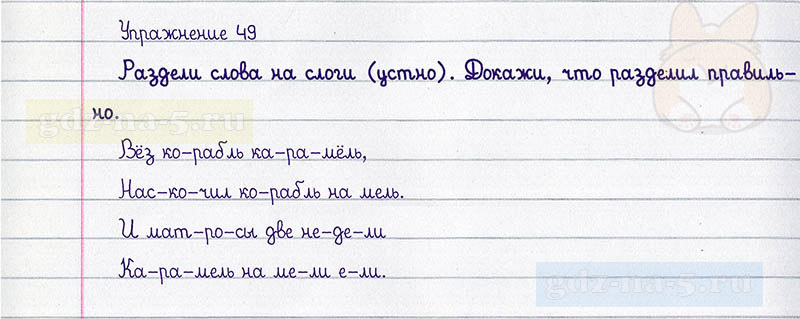 Упражнение 49
Раздели слова на слоги (устно). Докажи, что разделил правиль-
но.
gdz-na-5.ru
Вёз ко-рабль ка-ра-мёль,
Нас-ко-чил ко-рабль на мель.
И мат-ро-сы две не-де-ли
Ка-ра-мель на ме-ли е-ли.
gdz-na-5.ru